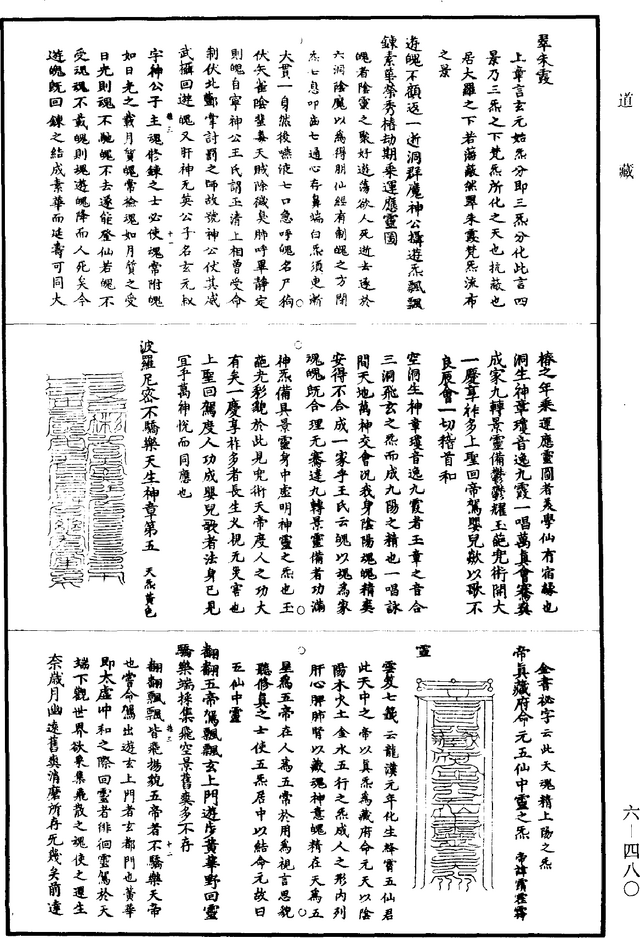 道藏
翠朱霞
上章言玄元始炁分即三炁分化此言四
景乃三炁之下梵炁所化之天也抗蔽也
居大羅之下若蔭蔽然翠朱霞梵炁流布
之景
遊魄不顧返一逝洞群魔神公攝遊炁飄飄
鍊素華榮秀椿劫期乘運應靈圖
魄者陰靈之聚好遊蕩欲人死逝去遂於
六洞陰魔以為得朋仙經有制魄之方閉
炁七息叩齒七通心存鼻端白炁須臾漸
大貫一身然後嚥液七口急呼魄名尸狗
伏矢雀陰吞賊非毒除穢臭肺呼畢靜定
則魄自寧神公王氏謂玉清上相曾受命
制伏北酆掌討罰之師故號神公伏其威
武攝回遊魄又肝神無英公子名玄元叔
字神公子主魂修鍊之士必使魂常附魄
如日光之載月質魄常撿魂如月質之受
日光則魂不馳魄不去遂能登仙若魄不
受魂魂不載魄則魂遊魄降而人死矣今
遊魄既回鍊之結成素華而延壽可同大
椿之年乘運應靈圖者夫學仙有宿緣也
洞生神章瓊音逸九霞一唱萬真會騫爽
成家九轉景靈備鬱鬱耀玉葩兜術開大
一慶享祚多上聖回帝駕嬰兒歡以歌不
良辰會一切稽首和
空洞生神章瓊音逸九霞者玉章之音合
三洞飛玄之炁而成九陽之精也一唱詠
間天地萬神交會況我身陰陽魂魄精爽
安得不合成一家乎王氏云魄以魂為家
魂魄既合理无騫違九轉景靈備者功滿
神炁備具景靈身中虛明神靈之炁也玉
葩光彩貌於此見兜術天帝度人之功大
有矣一慶享祚多者長生久視无災害也
上聖回駕度人功成嬰兒歌者法身已見
宜乎萬神悅而同應也
波羅尼密不驕樂天生神章第五 天炁黃色
金書祕字云此天魂精上陽之炁
帝真藏府命元五仙中靈之炁
靈
雲笈七籤云龍漢元年化生梓霄五仙君
此天中之帝以真炁為藏府命元天以陰
陽木火土金水五行之炁成人之形內列
肝心脾肺腎以藏魂神意魄精在天為五
星為五帝在人為五常於用為視言思貌
聽修真之士使五炁居中以結命元故曰
五仙中靈
翻翻五帝駕飄飄玄上門遊步黃華野回靈
驕樂端採集飛空景舊爽多不存
翻翻飄飄皆飛揚貌五帝者不驕樂天帝
也嘗命駕出遊玄上門者玄都門也黃華
即太虛沖和之際回靈者徘徊靈駕於天
端下觀世界欲來集飛散之魂使之還生
奈歲月幽遠舊爽消磨所存无幾矣前達
六－四八〇